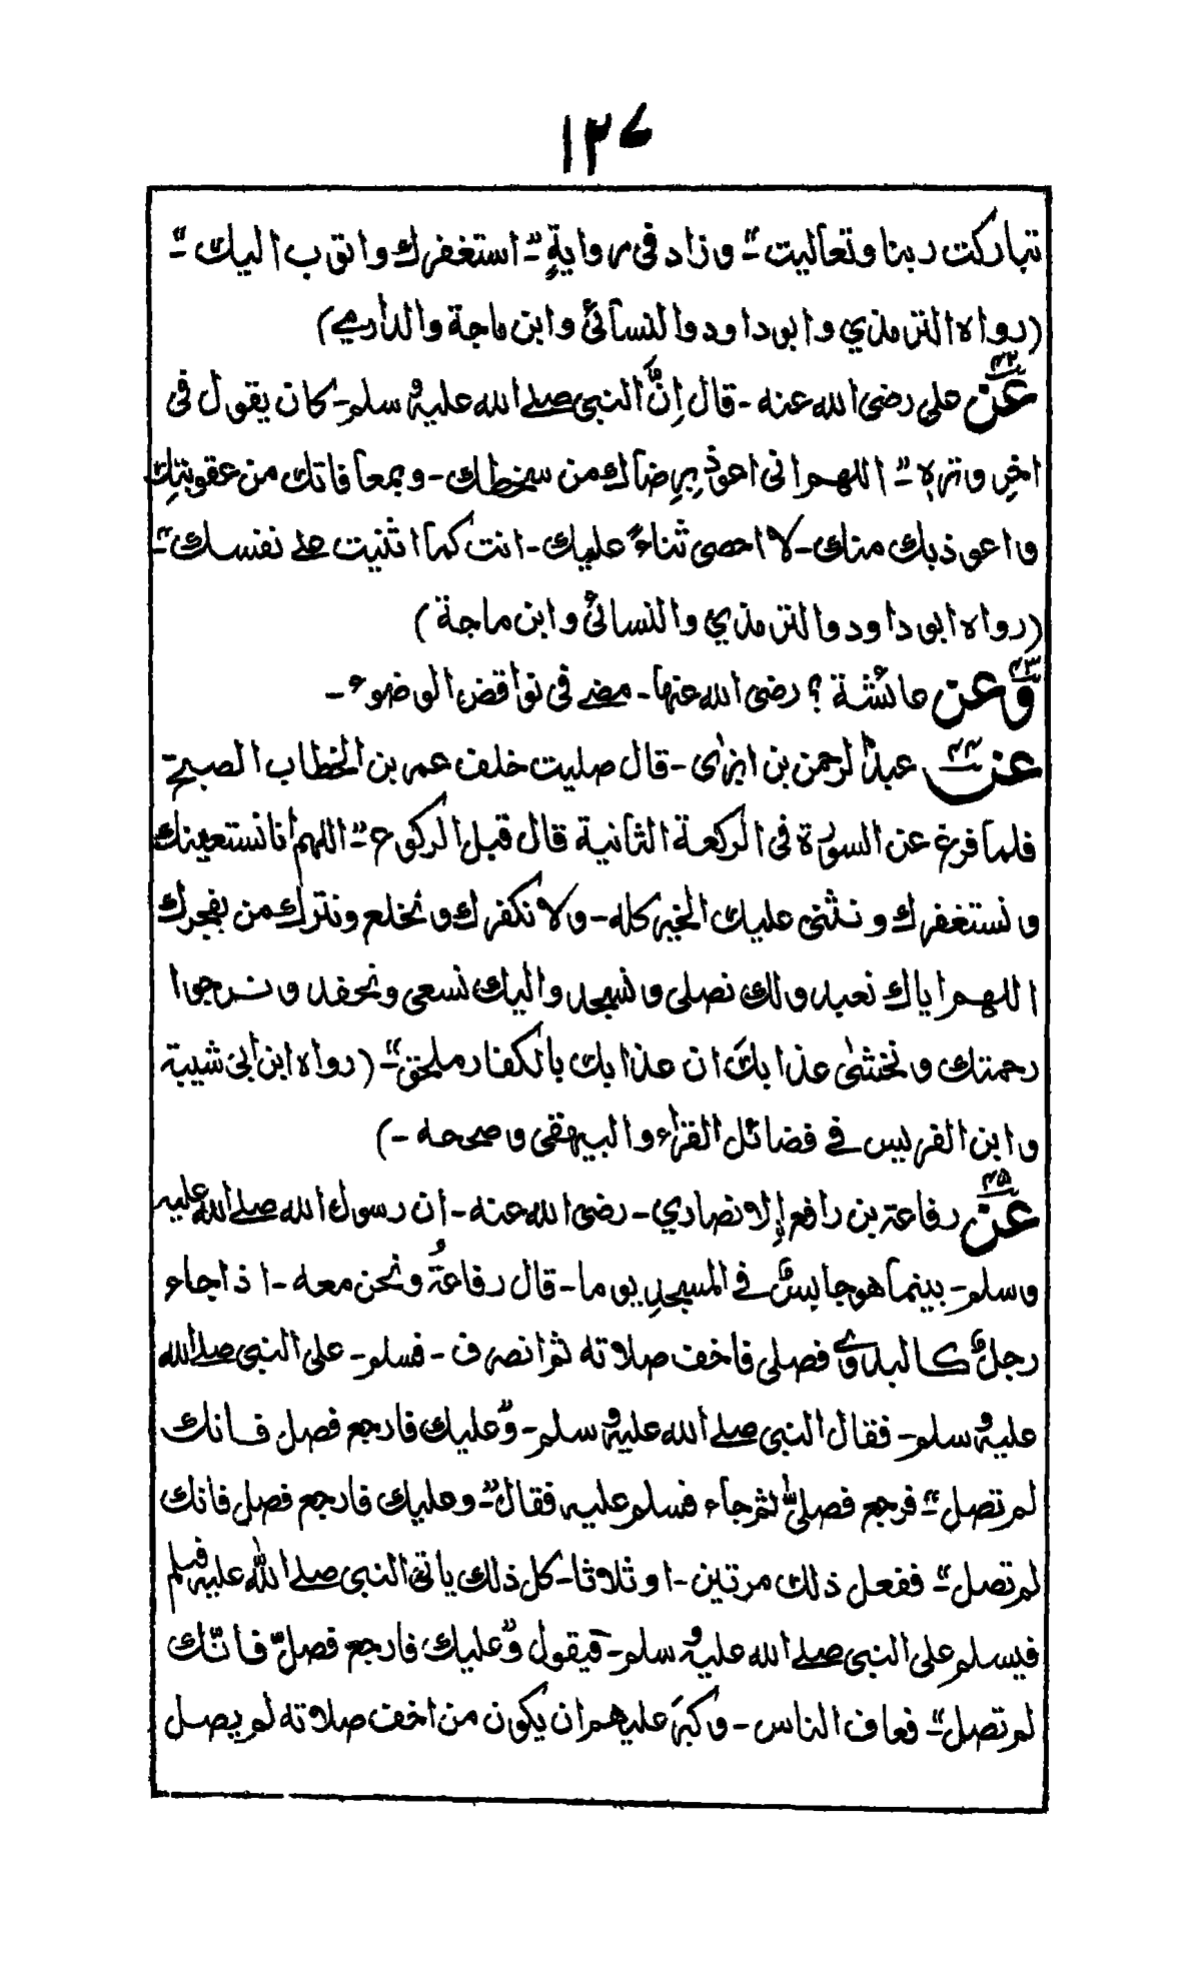 ١٢٧
تباركت ربنا وتعاليت" - وزاد فى رواية - "استغفرك واتوب اليك" -
(رواه الترمذي وابوداود والنسائى وابن ماجة والدارمي)
٤٢ عن على رضى الله عنه - قال إنّ النبى صلے الله عليه و سلم - كان يقول فى
اخر وتره - "اللهم انى اعوذ برضاك من سخطك - وبمعافاتك من عقوبتك
واعوذ بك منك - لا احصى ثناءً عليك - انت كما اثنيت علے نفسك" -
(رواه ابوداود والترمذي والنسائى وابن ماجة)
٤٣ وعن عائشة؟ رضى الله عنها - مضے فى نواقض الوضوء -
٤٤ عن عبد الرحمن بن ابزٰى - قال صليت خلف عمر بن الخطاب الصبح -
فلما فرغ عن السورة فى الركعة الثانية قال قبل الركوع - "اللهم انا نستعينك
ونستغفرك ونثنى عليك الخير كله - ولا نكفرك ونخلع ونترك من يفجرك
اللهم اياك نعبد ولك نصلى ونسجد واليك نسعى ونحفد ونرجوا
رحمتك ونخشىٰ عذابك ان عذابك بالكفار ملحق" - (رواه ابن ابى شيبة
وابن الضريس فے فضائل القرآء والبيهقى وصححه -)
٤٥ عن رفاعة بن رافع الانصاري - رضى الله عنه - ان رسول الله صلے الله عليه
وسلم - بينما هو جالسٌ فے المسجد يوما - قال رفاعةُ ونحن معه - اذ اجاء
رجلٌ كالبدوي فصلى فاخف صلاته ثم انصرف - فسلم - على النبى صلے الله
عليه و سلم - فقال النبى صلے الله عليه و سلم - "وعليك فارجع فصل فانك
لم تصل" - فرجع فصلىّ ثم جاء فسلم عليه فقال - "وعليك فارجع فصل فانك
لم تصل" - ففعل ذلك مرتين - او ثلاثا - كل ذلك ياتى النبى صلے الله عليه وسلم
فيسلم على النبى صلے الله عليه و سلم - فيقول "وعليك فارجع فصلّ فانّك
لم تصل" - فعاف الناس - وكبر عليهم ان يكون من اخف صلاته لم يصل